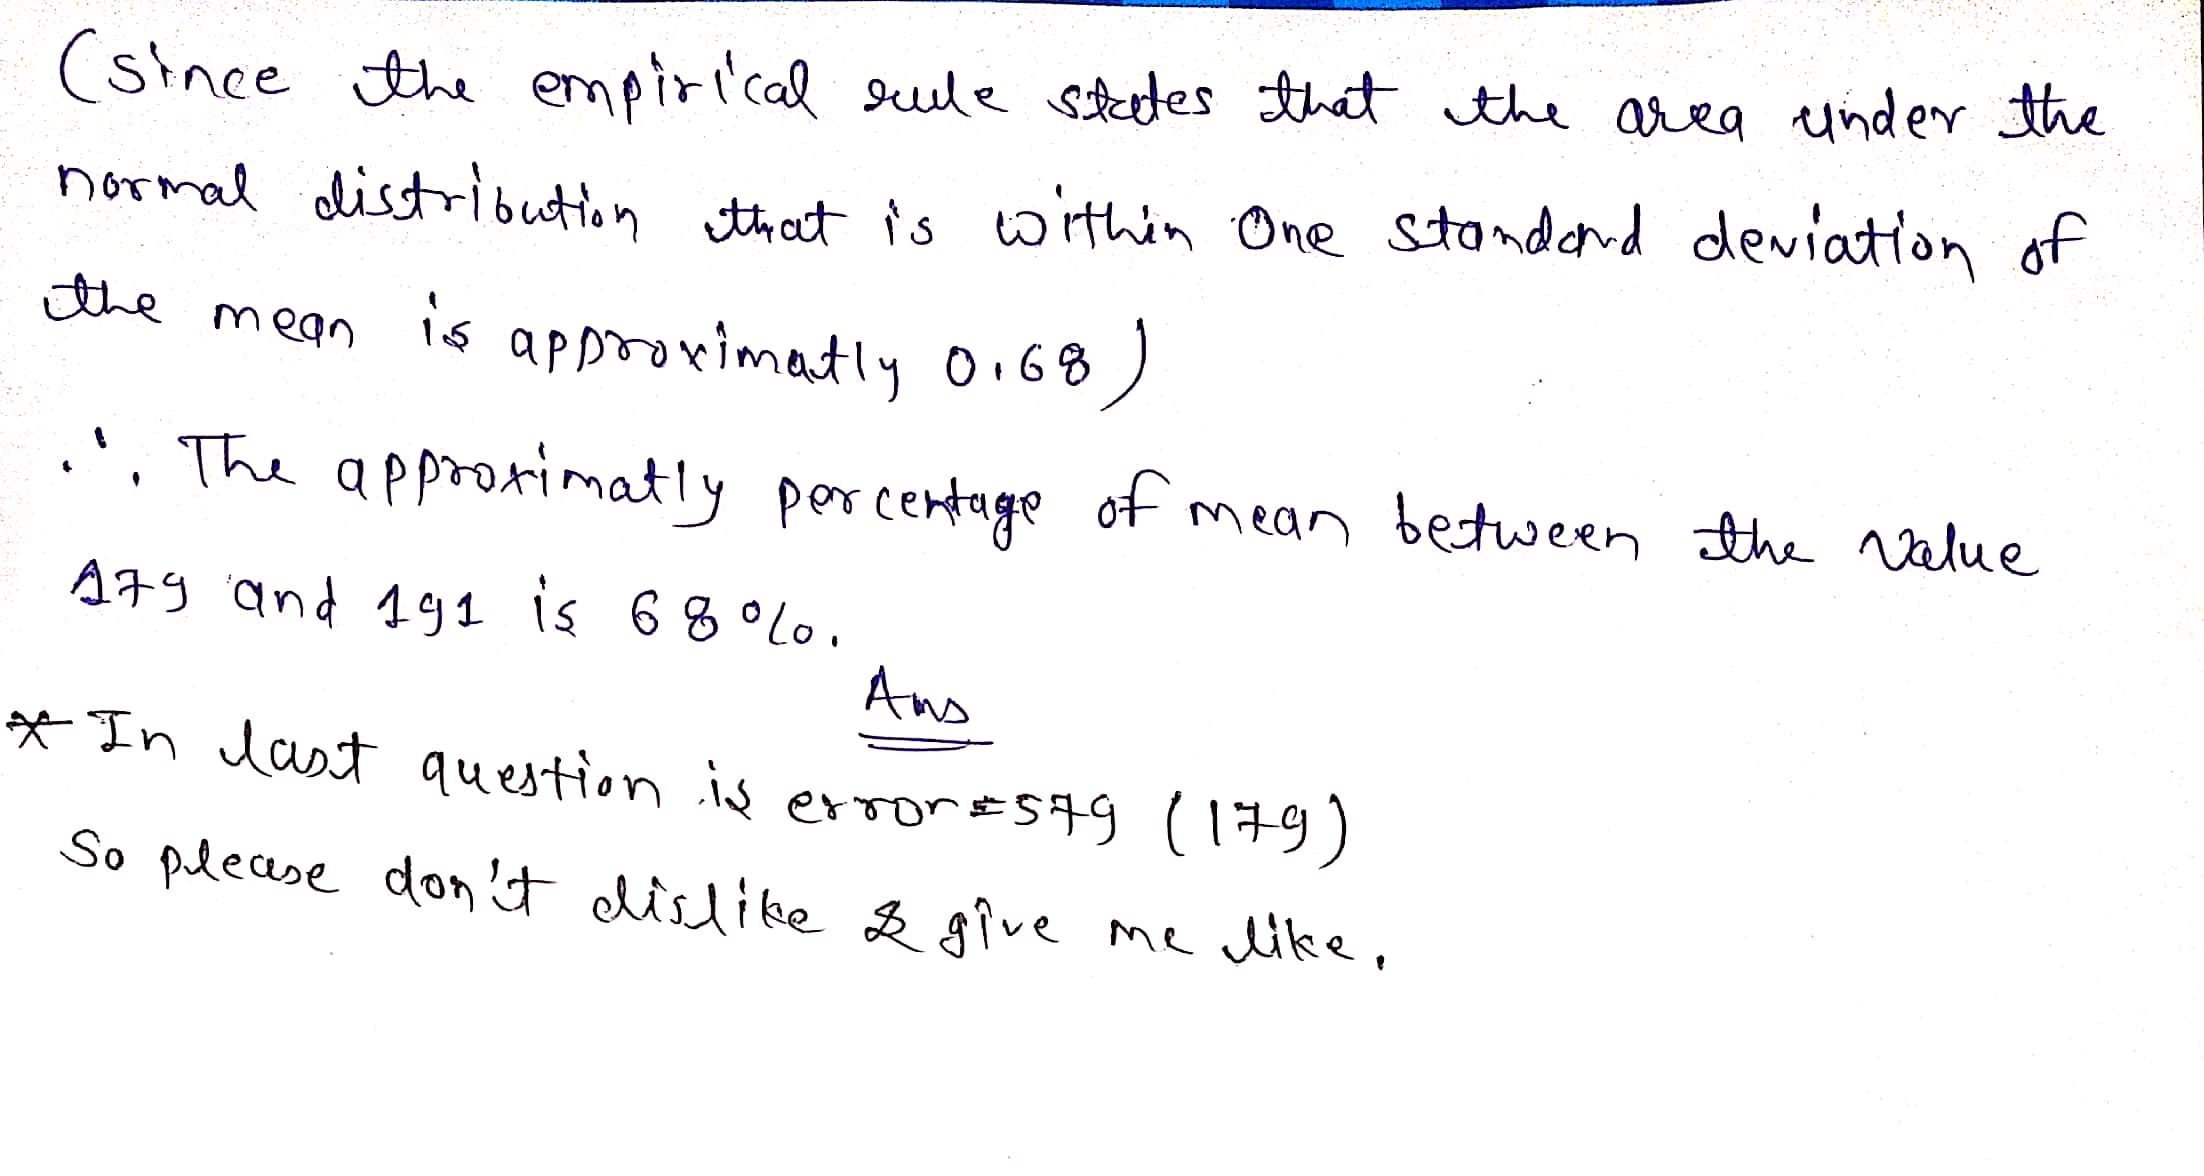 (since the empirical rule states that the area under the
normal distribution that is within One standard deviation of
the mean is approximatly 0.68)
∴ The approximatly percentage of mean between the value
179 and 191 is 68%.
Ans
* In last question is error = 579 (179)
So please don't dislike & give me like.